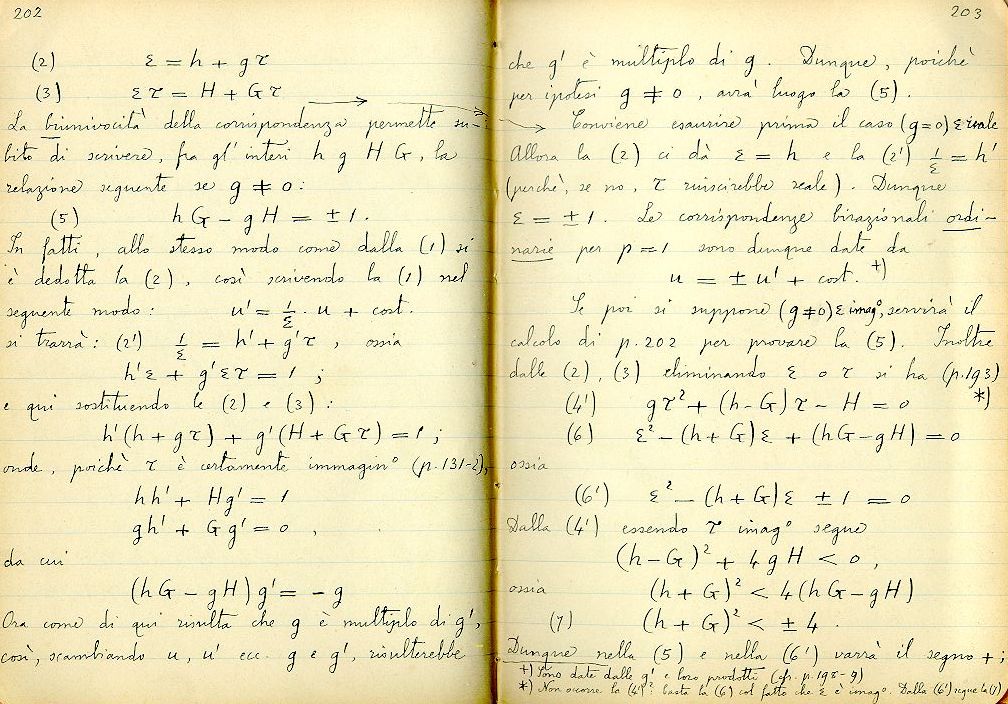 202
(2) ε = h + gτ
(3) ετ = H + Gτ
La biunivocità della corrispondenza permette su-
bito di scrivere, fra gl' interi h g H G, la
relazione seguente se g ≠ 0:
(5) hG - gH = ±1.
In fatti, allo stesso modo come dalla (1) si
è dedotta la (2), così scrivendo la (1) nel
seguente modo: u' = 1/ε · u + cost.
si trarrà: (2') 1/ε = h' + g'τ, ossia
h'ε + g'ετ = 1;
e qui sostituendo le (2) e (3):
h'(h + gτ) + g'(H + Gτ) = 1;
onde, poichè τ è certamente immagin° (p. 131-2),
hh' + Hg' = 1
gh' + Gg' = 0,
da cui
(hG - gH)g' = -g
Ora come di qui risulta che g è multiplo di g',
così, scambiando u, u' ecc. g e g', risulterebbe
203
che g' è multiplo di g. Dunque, poichè
per ipotesi g ≠ 0, avrà luogo la (5).
Conviene esaurire prima il caso (g=0) ε reale
Allora la (2) ci dà ε = h e la (2') 1/ε = h'
(perchè, se no, τ riuscirebbe reale). Dunque
ε = ±1. Le corrispondenze birazionali ordi-
narie per p = 1 sono dunque date da
u = ± u' + cost. +)
Se poi si suppone (g≠0) ε imag°, servirà il
calcolo di p. 202 per provare la (5). Inoltre
dalle (2), (3) eliminando ε o τ si ha (p. 193)
*)
(4') gτ² + (h-G)τ - H = 0
(6) ε² - (h+G)ε + (hG-gH) = 0
ossia
(6') ε² - (h+G)ε ± 1 = 0
Dalla (4') essendo τ imag° segue
(h-G)² + 4gH < 0,
ossia (h+G)² < 4(hG-gH)
(7) (h+G)² < ±4.
Dunque nella (5) e nella (6') varrà il segno +;
+) Sono date dalle g' e loro prodotti (cfr. p. 198-9)
*) Non occorre la (4'): basta la (6) col fatto che ε è imag°. Dalla (6') segue la (7)